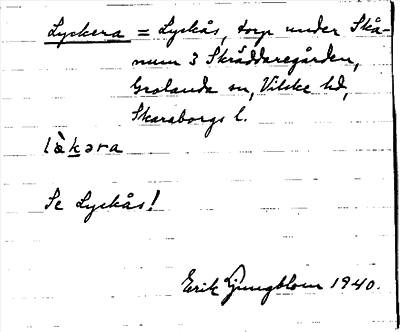 Lyckera = Lyckås, torp under Skå-
num 3 Skräddaregården,
Grolanda sn, Vilske hd,
Skaraborgs l.
lə̀kəra
Se Lyckås!
Erik Ljungblom 1940.